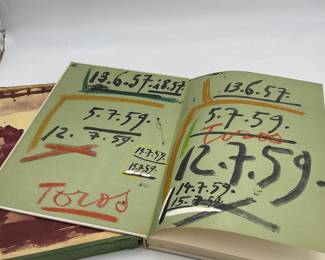 13.6.57.-18.57.
5.7.59.
12. 7.59.
14.7.59.
15.7.59.
Toros
13.6.57.
5.7.59.
Toros
12.7.59.
14.7.59.
15.7.59.